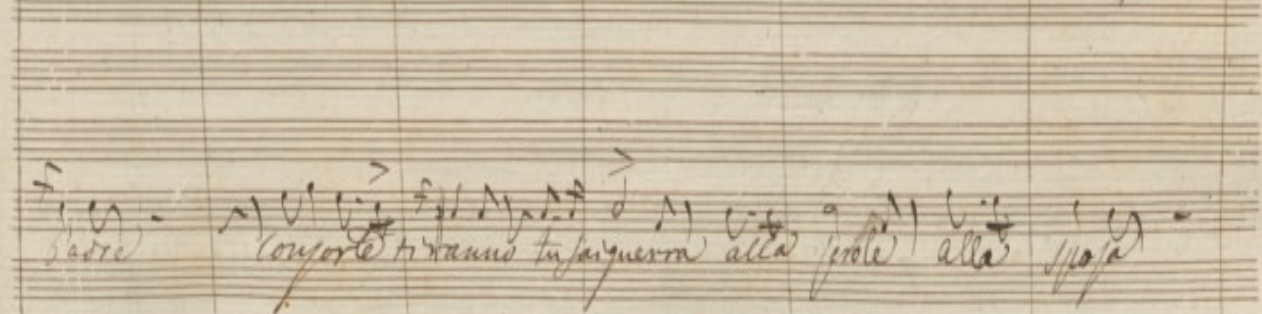 Padre Consorte tiranno tu fai guerra alla prole alla sposa